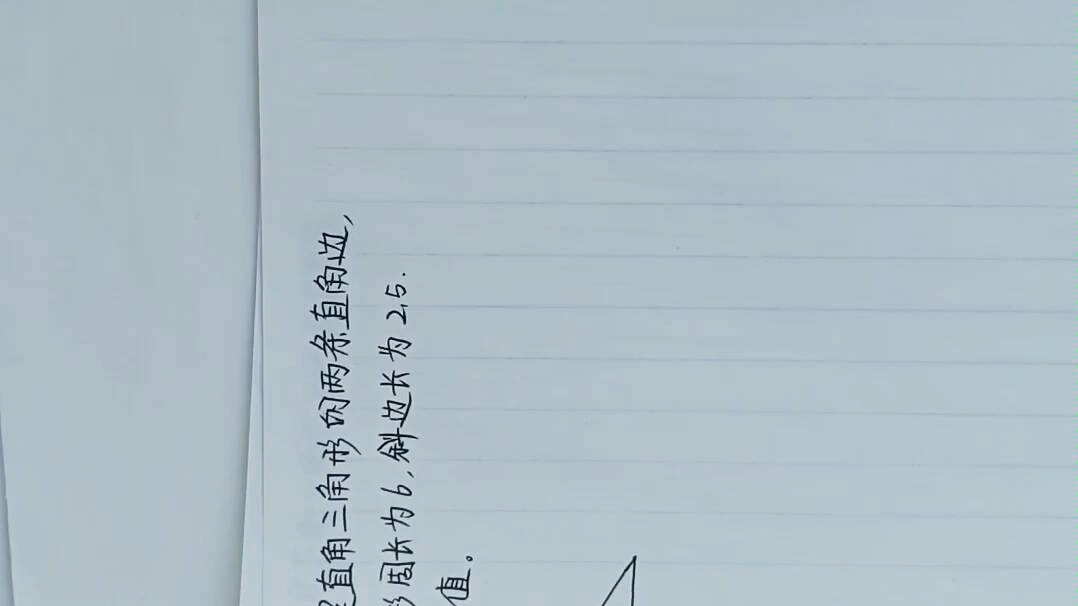 直角三角形的两条直角边,
周长为6,斜边长为2.5.
值。